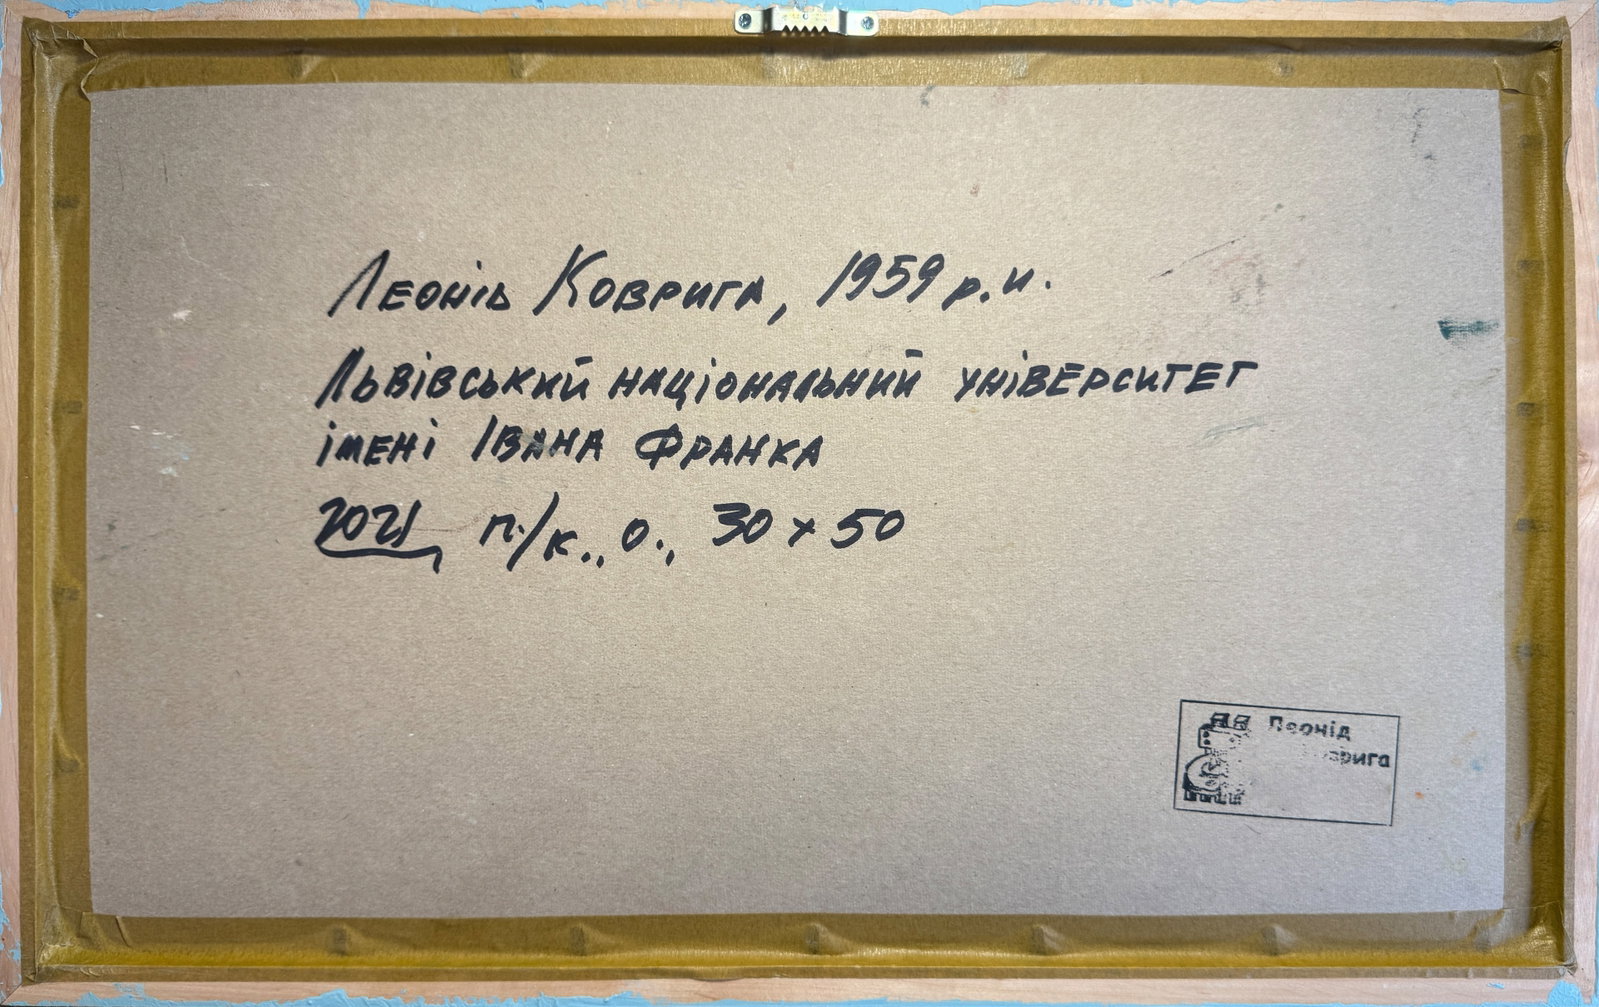 Леонід Коврига, 1959 р.н.
Львівський національний університет
імені Івана Франка
2021 п./к., о., 30 х 50
Леонід